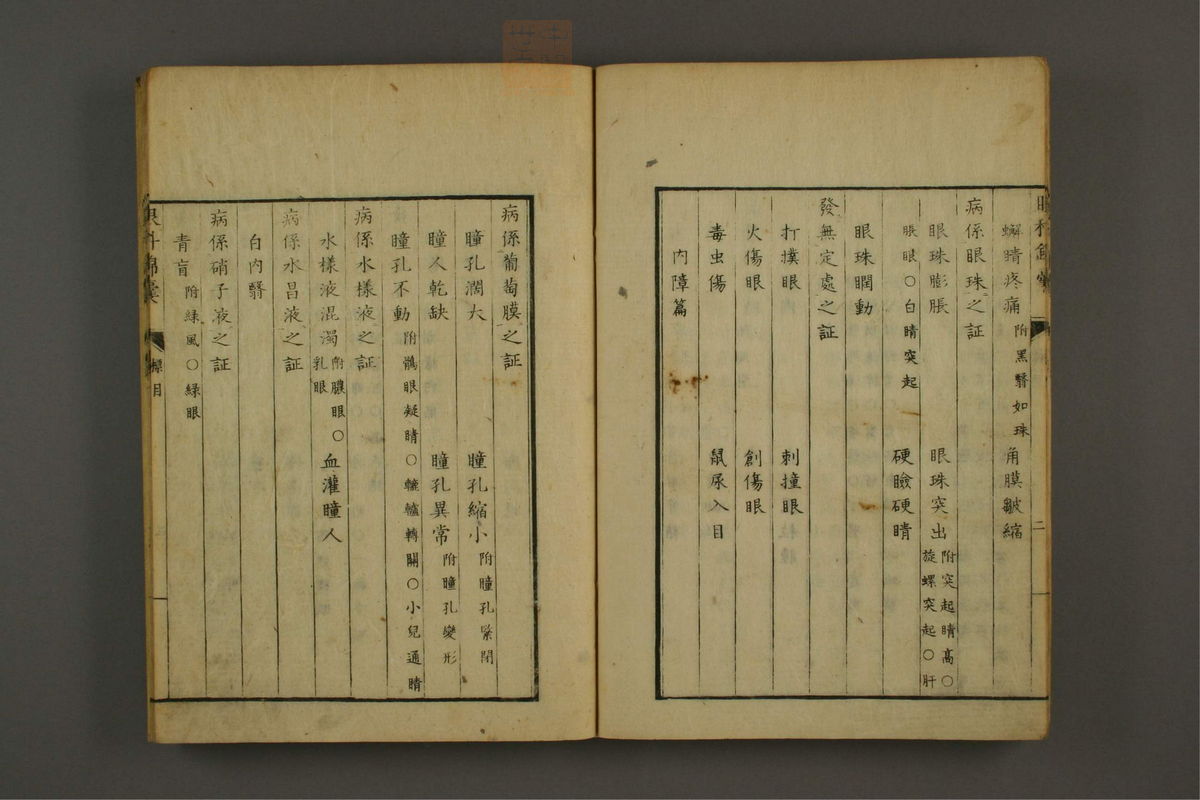 蠏睛疼痛 附黑翳如珠 角膜皺縮
病係眼珠之証
眼珠膨脹 眼珠突出 附突起睛高〇
旋螺突起〇肝
脹眼〇白睛突起 硬瞼硬睛
眼珠瞤動
發無定處之証
打撲眼 刺撞眼
火傷眼 創傷眼
毒虫傷 鼠尿入目
内障篇
二
病係葡萄膜之証
瞳孔濶大 瞳孔縮小 附瞳孔緊閉
瞳人乾缺 瞳孔異常 附瞳孔變形
瞳孔不動 附鶻眼凝睛〇轆轤轉關〇小兒通睛
病係水樣液之証
水樣液混濁 附膿眼〇
乳眼
血灌瞳人
病係水晶液之証
白内翳
病係硝子液之証
青盲 附綠風〇綠眼
眼科錦囊 標目